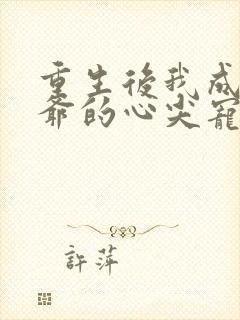 重生後我成
爺的心尖寵
許萍